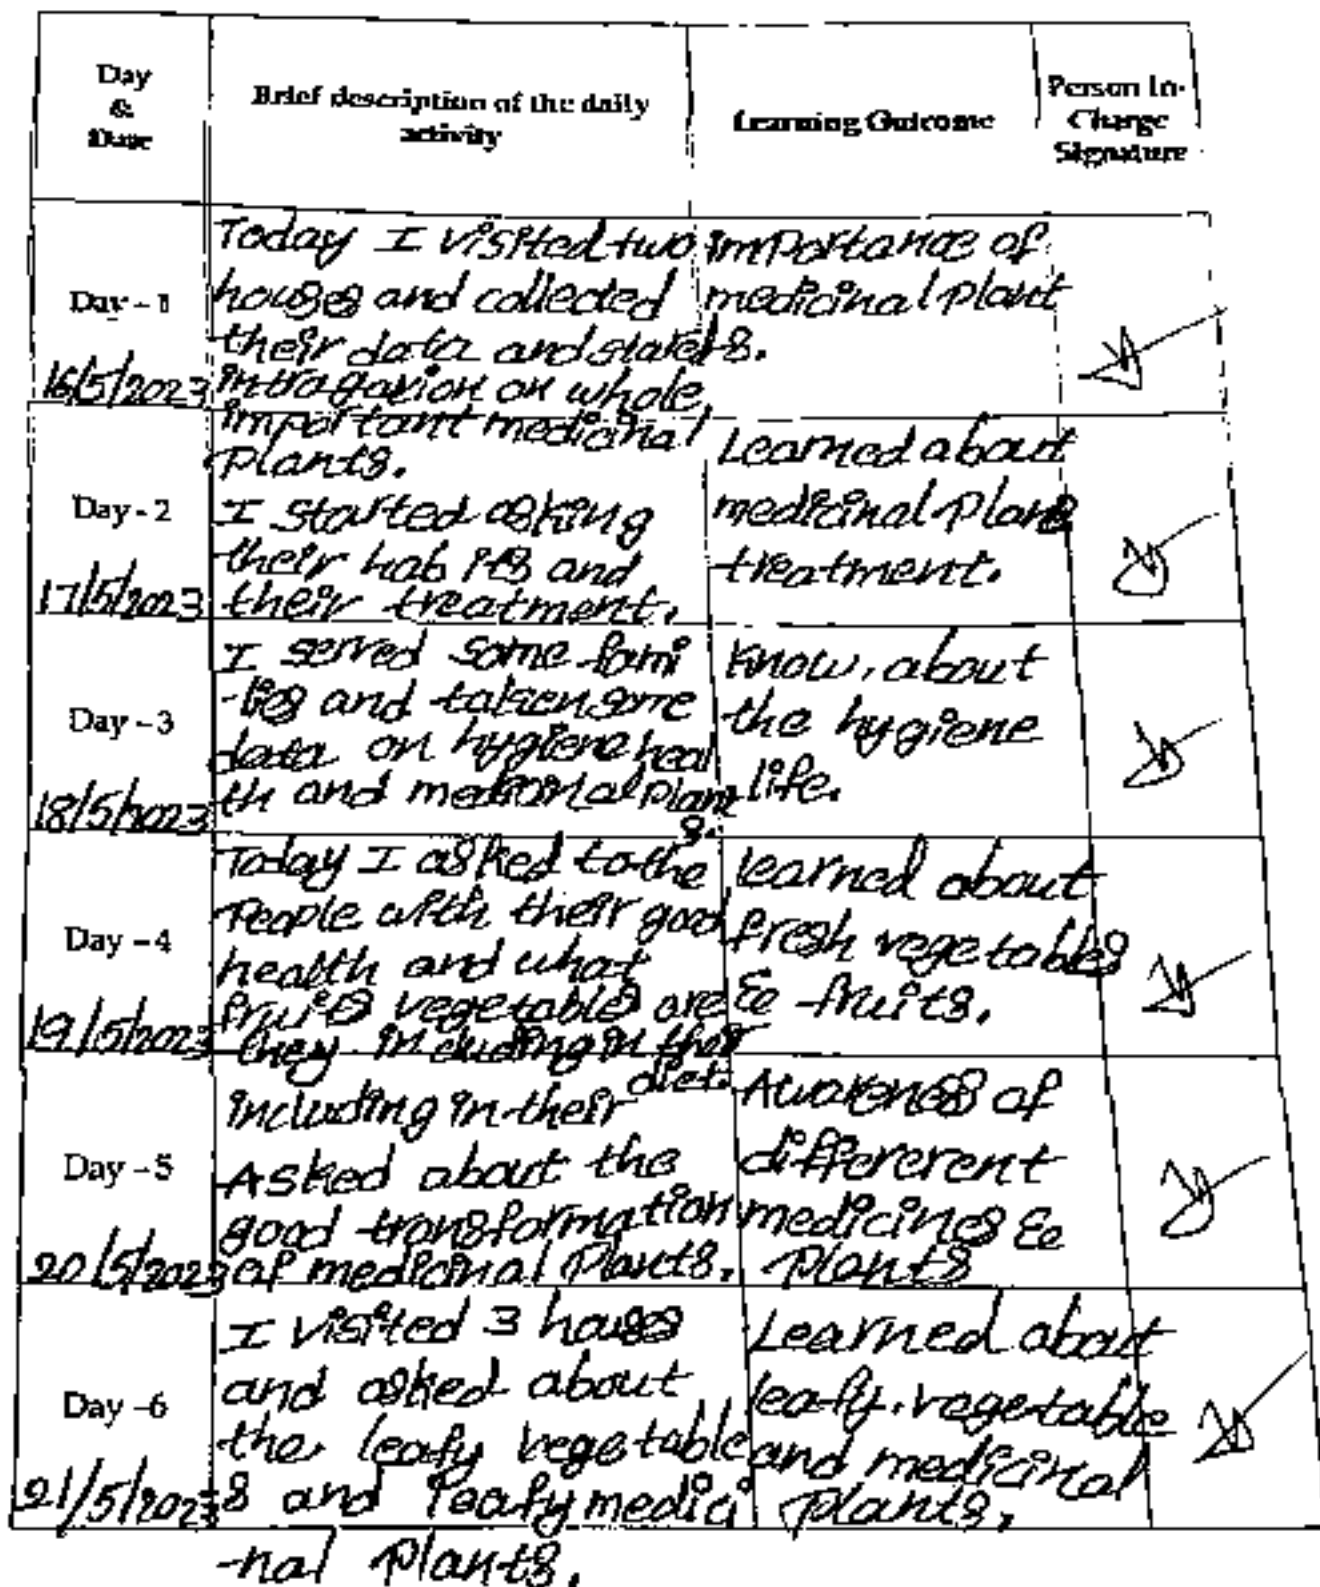 Day & Date
Brief description of the daily activity
Learning Outcome
Person In-Charge Signature
Day - 1
16/5/2023
Today I visited two
houses and collected
their data and
on whole
important medicinal
Plants.
importance of
medicinal plant
s.
Day - 2
17/5/2023
I started asking
their habits and
their treatment.
Learned about
medicinal plants
treatment.
Day - 3
18/5/2023
I served some fami
-lies and taken some
data on hygiene heal
th and medicinal plant
s.
Know, about
the hygiene
life.
Day - 4
19/5/2023
Today I asked to the
People with their good
health and what
fruits vegetables are
they including in their
diet.
learned about
fresh vegetables
& fruits.
Day - 5
20/5/2023
including in their
Asked about the
good transformation
of medicinal Plants.
Awareness of
differerent
medicines &
plants
Day - 6
21/5/2023
I visited 3 houses
and asked about
the leafy vegetable
s and leafy medici
-nal plants.
Learned about
leafy vegetable
and medicinal
plants.